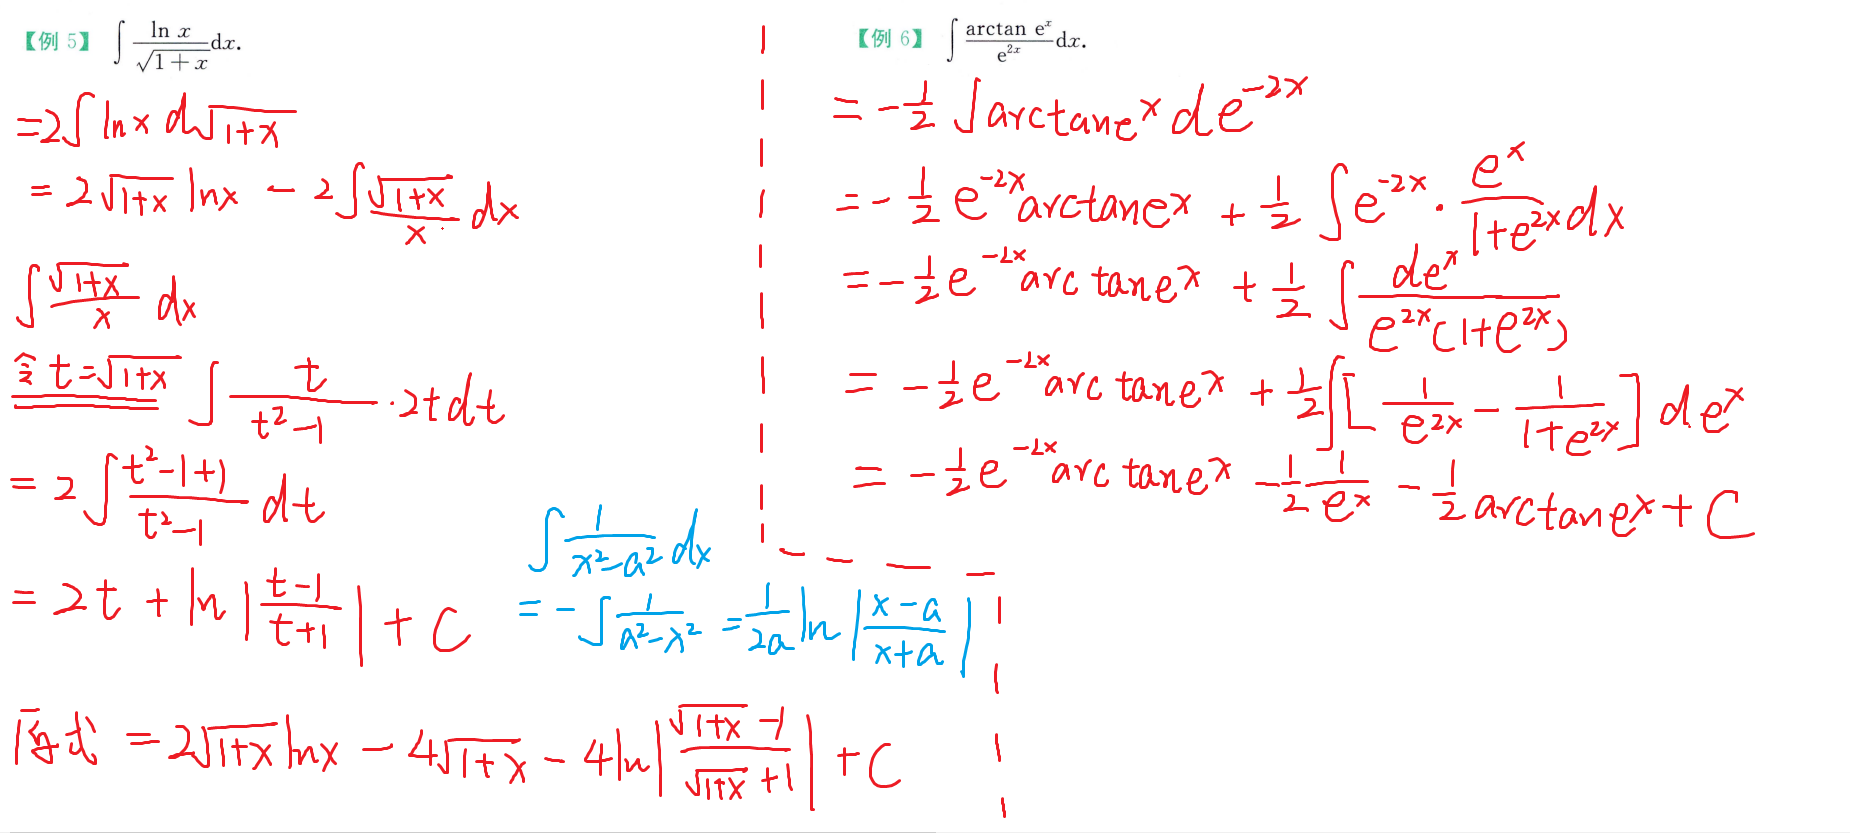 【例 5】 ∫ ln x / √(1+x) dx.
=2∫ lnx d√(1+x)
= 2√(1+x) lnx - 2∫ √(1+x) / x dx
∫ √(1+x) / x dx
令 t=√(1+x) ∫ t / (t²-1) · 2t dt
= 2∫ (t²-1+1) / (t²-1) dt
= 2t + ln |(t-1) / (t+1)| + C
∫ 1 / (x²-a²) dx
= -∫ 1 / (a²-x²) = 1/(2a) ln |(x-a) / (x+a)|
原式 = 2√(1+x) lnx - 4√(1+x) - 4ln |(√(1+x) -1) / (√(1+x) +1)| + C
【例 6】 ∫ arctan eˣ / e²ˣ dx.
= -1/2 ∫ arctaneˣ de⁻²ˣ
= -1/2 e⁻²ˣ arctaneˣ + 1/2 ∫ e⁻²ˣ · eˣ / (1+e²ˣ) dx
= -1/2 e⁻²ˣ arc taneˣ + 1/2 ∫ deˣ / (e²ˣ(1+e²ˣ))
= -1/2 e⁻²ˣ arc taneˣ + 1/2 ∫ [1/e²ˣ - 1/(1+e²ˣ)] deˣ
= -1/2 e⁻²ˣ arc taneˣ - 1/2 1/eˣ - 1/2 arctaneˣ + C